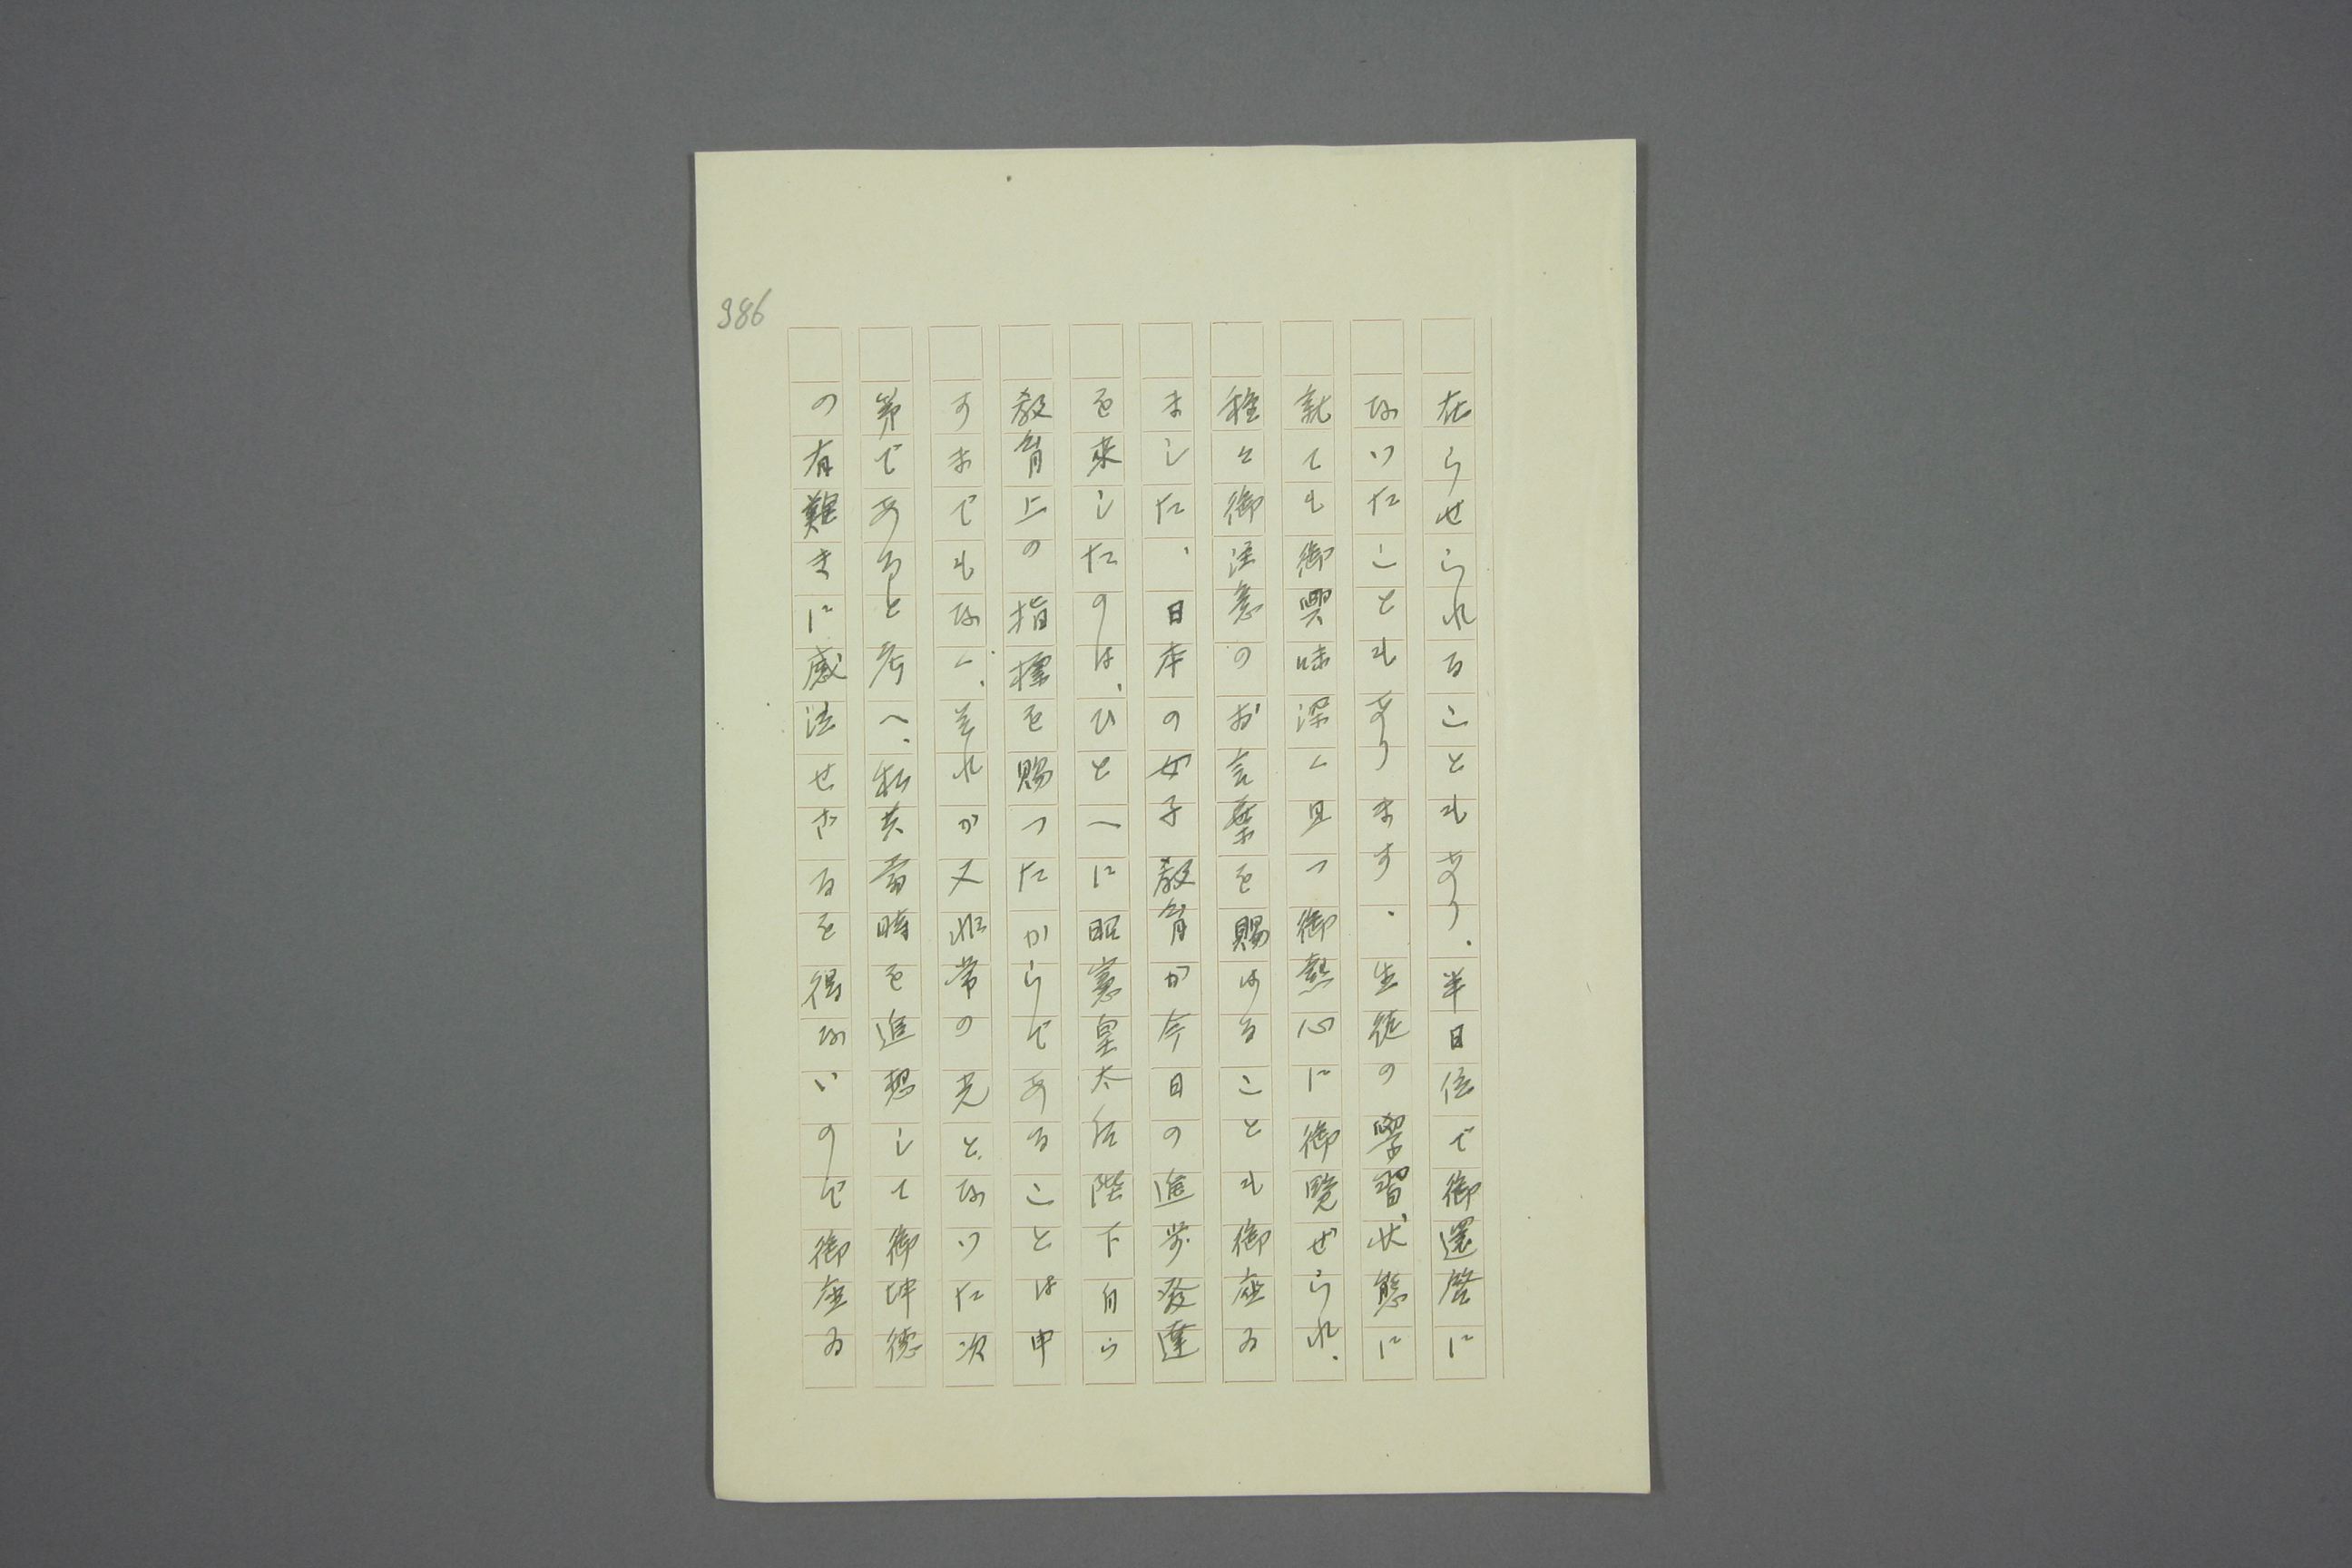 986
在らせられることもあり、半日位で御還啓に
なつたこともあります。生徒の學習状態に
就ても御興味深く且つ御熱心に御覽ぜられ、
種々御注意のお言葉を賜はることも御座ゐ
ました、日本の女子教育が今日の進歩發達
を来したのは、ひと一に昭憲皇太后陛下自ら
教育上の指標を賜つたからであることは申
すまでもなく、それが又非常の光となつた次
第であると考へ、私共當時を追想して御坤德
の有難きに感泣せざるを得ないので御座ゐ